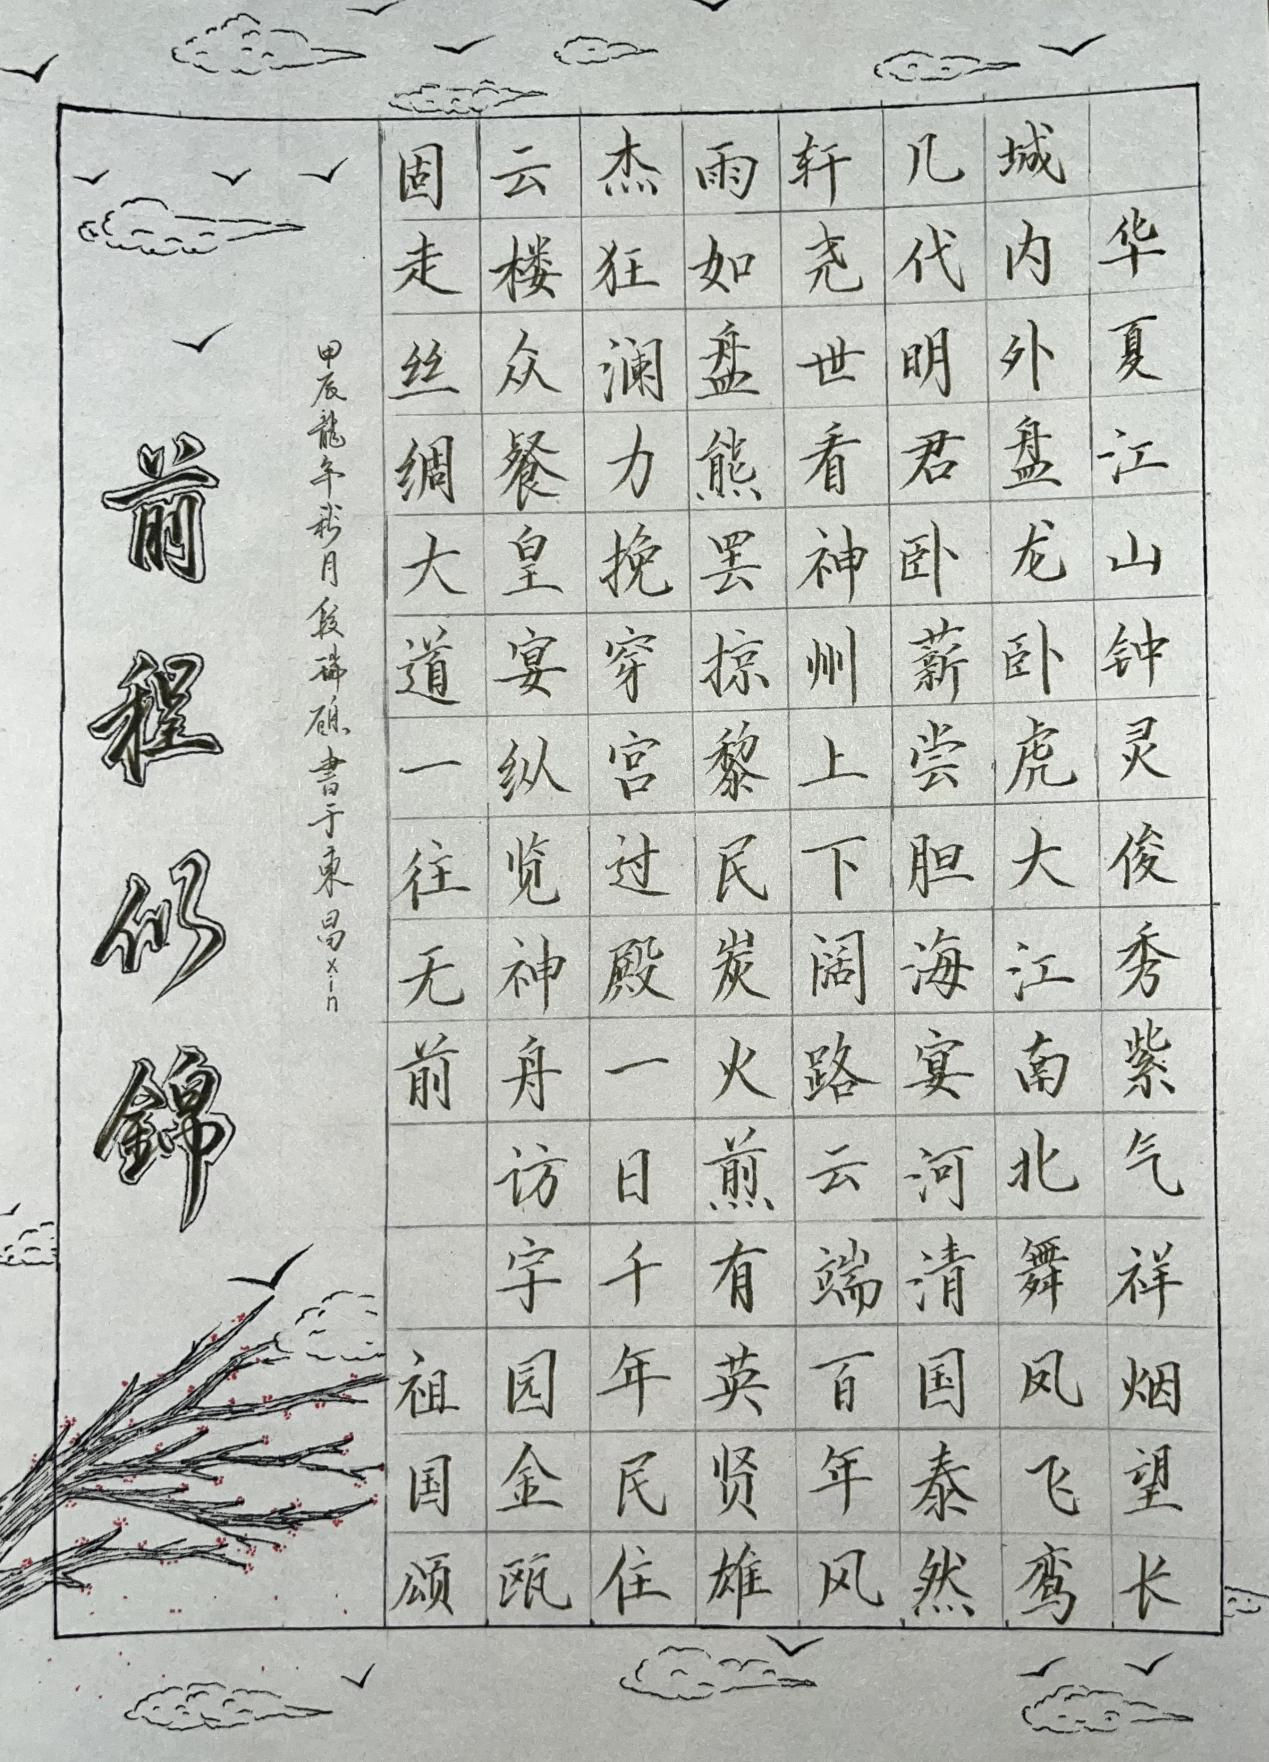 华夏江山钟灵俊秀紫气祥烟望长
城内外盘龙卧虎大江南北舞凤飞鸾
几代明君卧薪尝胆海宴河清国泰然
轩尧世看神州上下阔路云端百年风
雨如盘熊罴掠黎民炭火煎有英贤雄
杰狂澜力挽穿宫过殿一日千年民住
云楼众餐皇宴纵览神舟访宇园金瓯
固走丝绸大道一往无前 祖国颂
甲辰龍年 月段 书于東昌xin
前程似錦